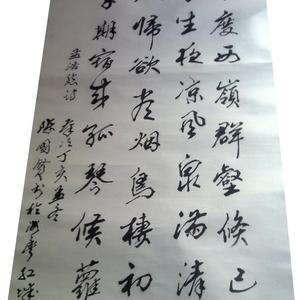 度西嶺群壑倏已
生夜涼風泉滿清
歸欲盡烟鳥棲初
期宿來孤琴候蘿
孟浩然詩
歲次丁亥孟冬
國
書於